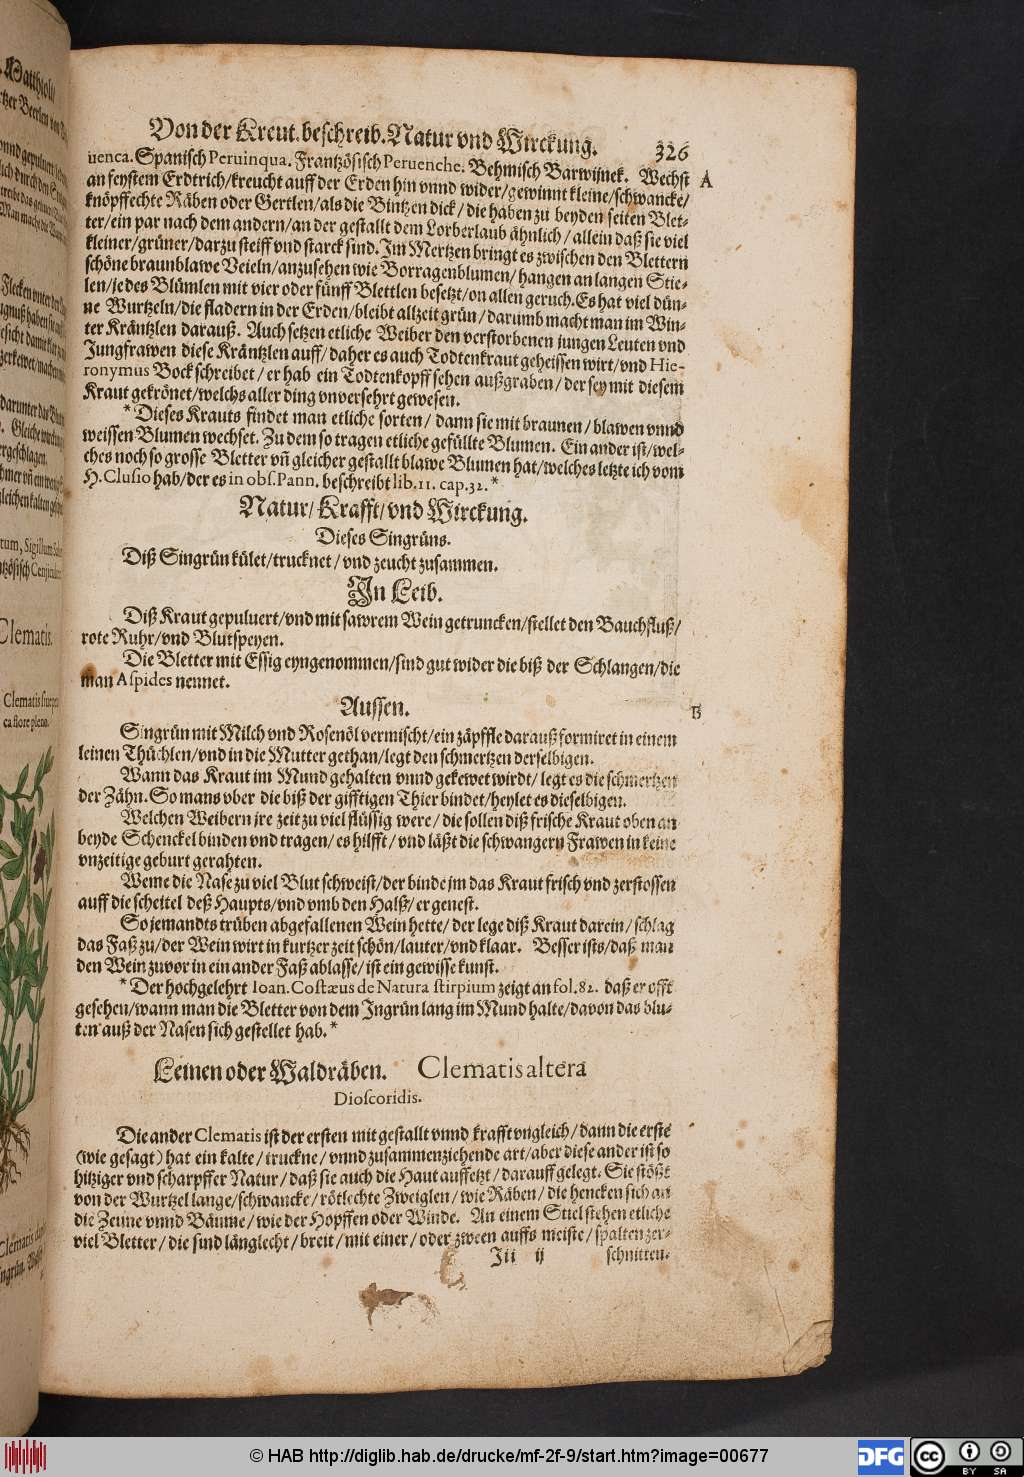 Von der Kreut. beschreib. Natur vnd Wirckung. 326
uenca. Spanisch Peruinqua. Frantzösisch Peruenche. Behmisch Barwijnek. Wechst A
an feystem Erdtrich/kreucht auff der Erden hin vnnd wider/gewinnt kleine/schwancke/
knöpffechte Räben oder Gertlen/als die Bintzen dick/die haben zu beyden seiten Blet-
ter/ein par nach dem andern/an der gestallt dem Lorberlaub ähnlich/allein daß sie viel
kleiner/grüner/darzu steiff vnd starck sind. Im Mertzen bringt es zwischen den Blettern
schöne braunblawe Veieln/anzusehen wie Borragenblumen/hangen an langen Stie-
len/jedes Blümlen mit vier oder fünff Blettlen besetzt/on allen geruch. Es hat viel dün-
ne Wurtzeln/die fladern in der Erden/bleibt allzeit grün/darumb macht man im Win-
ter Kräntzlen darauß. Auch setzen etliche Weiber den verstorbenen jungen Leuten vnd
Jungfrawen diese Kräntzlen auff/daher es auch Todtenkraut geheissen wirt/vnd Hie-
ronymus Bock schreibet/er hab ein Todtenkopff sehen außgraben/der sey mit diesem
Kraut gekrönet/welchs aller ding vnversehrt gewesen.
* Dieses Krauts findet man etliche sorten/dann sie mit braunen/blawen vnnd
weissen Blumen wechset. Zu dem so tragen etliche gefüllte Blumen. Ein ander ist/wel-
ches noch so grosse Bletter vñ gleicher gestallt blawe Blumen hat/welches letzte ich vom
H. Clusio hab/der es in obs. Pann. beschreibt lib. 11. cap. 32. *
Natur/Krafft/vnd Wirckung.
Dieses Singrüns.
Diß Singrün kület/trucknet/vnd zeucht zusammen.
In Leib.
Diß Kraut gepuluert/vnd mit sawrem Wein getruncken/stellet den Bauchfluß/
rote Ruhr/vnd Blutspeyen.
Die Bletter mit Essig eyngenommen/sind gut wider die biß der Schlangen/die
man Aspides nennet.
Aussen. B
Singrün mit Milch vnd Rosenöl vermischt/ein zäpffle darauß formiret in einem
leinen Thüchlen/vnd in die Mutter gethan/legt den schmertzen derselbigen.
Wann das Kraut im Mund gehalten vnnd gekewet wirdt/legt es die schmertzen
der Zähn. So mans vber die biß der gifftigen Thier bindet/heylet es dieselbigen.
Welchen Weibern jre zeit zu viel flüssig were/die sollen diß frische Kraut oben an
beyde Schenckel binden vnd tragen/es hilfft/vnd läßt die schwangern Frawen in keine
vnzeitige geburt gerahten.
Weme die Nase zu viel Blut schweist/der binde jm das Kraut frisch vnd zerstossen
auff die scheitel deß Haupts/vnd vmb den Halß/er genest.
So jemandts trüben abgefallenen Wein hette/der lege diß Kraut darein/schlag
das Faß zu/der Wein wirt in kurtzer zeit schön/lauter/vnd klaar. Besser ists/daß man
den Wein zuvor in ein ander Faß ablasse/ist ein gewisse kunst.
* Der hochgelehrt Ioan. Costæus de Natura stirpium zeigt an fol. 82. daß er offt
gesehen/wann man die Bletter von dem Ingrün lang im Mund halte/davon das blu-
ten auß der Nasen sich gestellet hab. *
Leinen oder Waldräben. Clematis altera
Dioscoridis.
Die ander Clematis ist der ersten mit gestallt vnnd krafft vngleich/dann die erste
(wie gesagt) hat ein kalte/truckne/vnnd zusammenziehende art/aber diese ander ist so
hitziger vnd scharpffer Natur/daß sie auch die Haut auffetzt/darauff gelegt. Sie stößt
von der Wurtzel lange/schwancke/rötlechte Zweiglen/wie Räben/die hencken sich an
die Zeune vnnd Bäume/wie der Hopffen oder Winde. An einem Stiel stehen etliche
viel Bletter/die sind länglecht/breit/mit einer/oder zween auffs meiste/spalten zer-
Jii ij schnitten.
Clematis.
© HAB http://diglib.hab.de/drucke/mf-2f-9/start.htm?image=00677
DFG cc BY SA